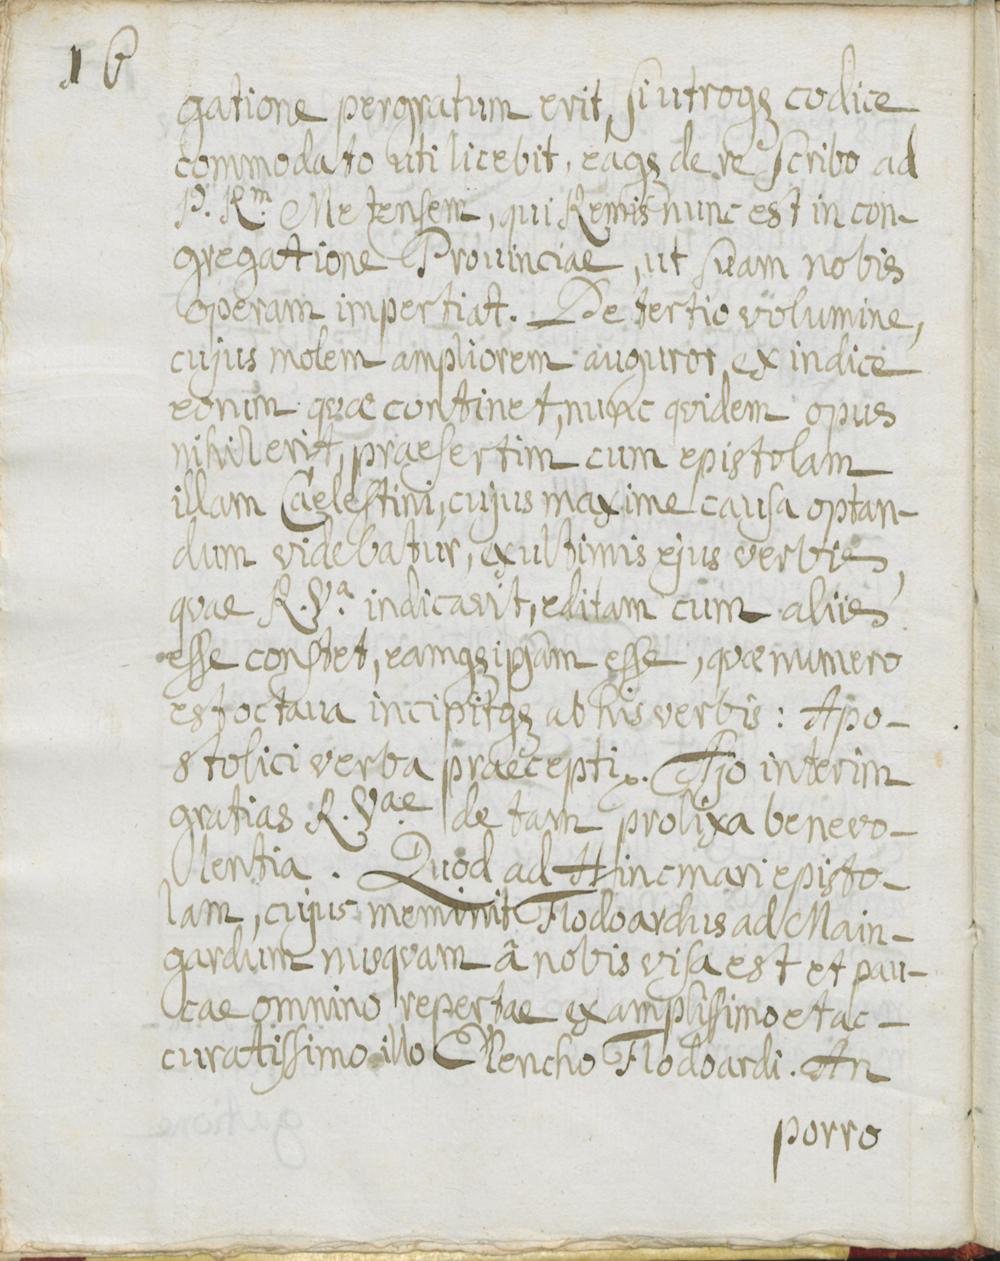 16
gatione pergratum erit, si utroqȝ codice
commodato uti licebit, eaqȝ de re scribo ad
P. Rm. Metensem, qui Remis nunc est in con-
gregatione Prouinciae, ut suam nobis
operam impertiat. De tertio volumine,
cujus molem ampliorem auguror ex indice
eorum quae continet, nunc quidem opus
nihil erit, praesertim cum epistolam
illam Caelestini, cujus maxime causa optan-
dum videbatur, ex ultimis ejus verbis,
quae R. Va. indicavit, editam cum aliis
esse constet, eamqȝ ipsam esse, quae numero
est octaua incipitqȝ ab his verbis: Apo-
stolici verba praecepti. Ajo interim
gratias R. Vae de tam prolixa benevo-
lentia. Quod ad Hincmari episto-
lam, cujus meminit Flodoardus ad Main-
gardum nusquam â nobis visa est et pau-
cae omnino repertae ex amplissimo et ac-
curatissimo illo Elencho Flodoardi. An
porro